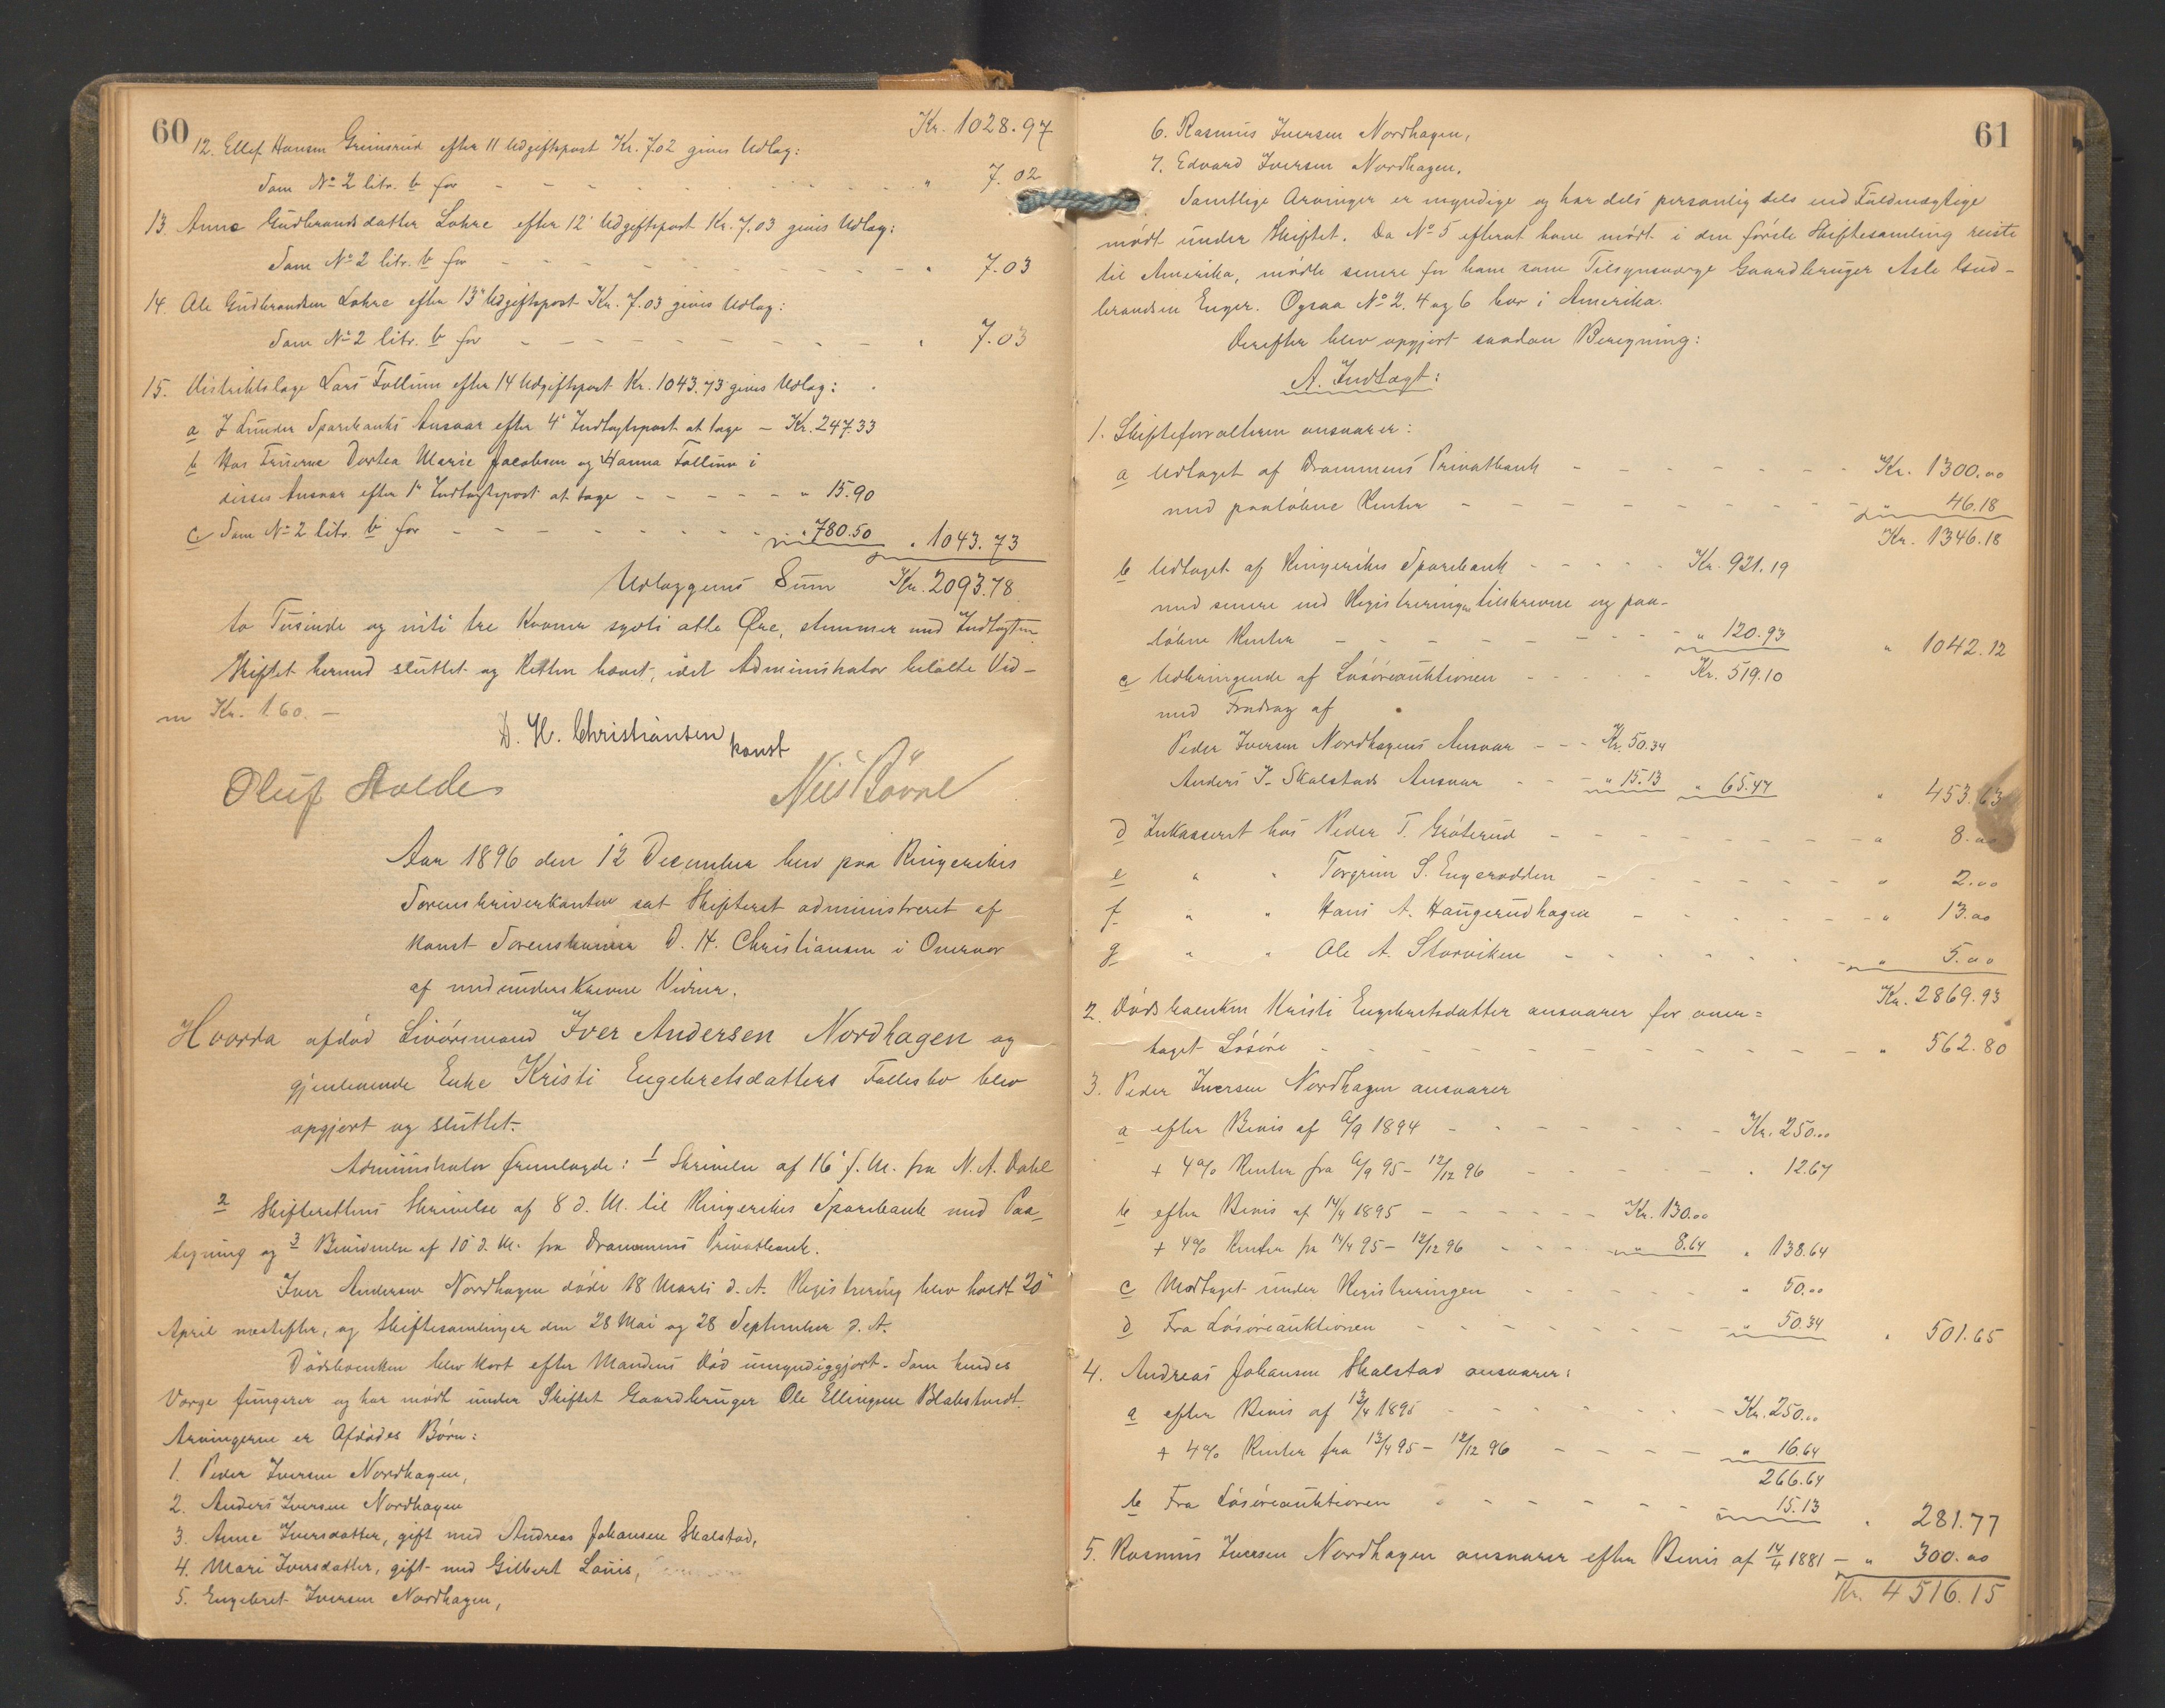 60
Kr. 1028.97
12. Ellef Hansen Grimsrud efter 11 Udgiftspost Kr. 7.02 gives Udlæg:
Som No 2 litr. b for - - - " 7.02
13. Anne Gudbrandsdatter Lohre efter 12' Udgiftspost Kr. 7.03 gives Udlæg:
Som No 2 litr. b for - - - " 7.03
14. Ole Gudbrandsen Lohre efter 13' Udgiftspost Kr. 7.03 gives Udlæg:
Som No 2 litr. b for - - - " 7.03
15. Distriktslæge Lars Follum efter 14 Udgiftspost Kr. 1043.73 gives Udlæg:
a I Lunder Sparebanks Ansvar efter 4' Indtægtspost at tage - Kr. 247.33
b Hos Fruerne Dortea Marie Jacobsen og Hanna Follum i
disses Ansvar efter 1' Indtægtspost at tage - - - " 15.90
c Som No 2 litr. b for - - - " 780.50 " 1043.73
Udlæggenes Sum Kr. 2093.78
to Tusinde og niti tre Kroner sytti otte Øre, stemmer med Indtægten.
Skiftet hermed sluttet og Retten hævet, idet Administrator betalte Vid-
ne Kr. 1.60. -
D. H. Christiansen
konst
Oluf Holde
Nils Bövre
Aar 1896 den 12 December blev paa Ringerikes
Sorenskriverkontor sat Skifteret administreret af
konst Sorenskriver D. H. Christiansen i Overvær
af medunderskrevne Vidner.
Hvorda afdød Livörsmand Iver Andersen Nordhagen og
gjenlevende Enke Kristi Engebretsdatters Fællesbo blev
opgjort og sluttet.
Administrator fremlagde: 1 Skrivelse af 16' f. M. fra N. A. Dahl
2 Skifterettens Skrivelse af 8 d. M. til Ringerikes Sparebank med Paa-
tegning og 3 Bevidnelse af 10 d. M. fra Drammens Privatbank.
Iver Andersen Nordhagen døde 18 Marts d. A. Registrering blev holdt 20'
April næstefter, og Skiftesamlinger den 28 Mai og 28 September d. A.
Dødsboenken blev kort efter Mandens Død umyndiggjort. Som hendes
Værge fungerer og har mødt under Skiftet Gaardbruger Ole Ellingsen Blakstvedt.
Arvingerne er Afdødes Børn:
1. Peder Iversen Nordhagen,
2. Anders Iversen Nordhagen
3. Anne Iversdatter, gift med Andreas Johansen Skalstad,
4. Mari Iversdatter, gift med Gilbert Louis,
5. Engebret Iversen Nordhagen,
61
6. Rasmus Iversen Nordhagen,
7. Edvard Iversen Nordhagen.
Samtlige Arvinger er myndige og har dels personlig dels ved Fuldmægtige
mødt under Skiftet. Da No 5 efterat have mødt i den første Skiftesamling reiste
til Amerika, mødte senere for ham som Tilsynsværge Gaardbruger Asle Gud-
brandsen Enger. Ogsaa No 2. 4 og 6 bor i Amerika.
Derefter blev opgjort saadan Beregning:
A. Indtægt:
1. Skifteforvalteren ansvarer:
a Udtaget af Drammens Privatbank - - - Kr. 1300.00
med paaløbne Renter - - - " 46.18
Kr. 1346.18
b Udtaget af Ringerikes Sparebank - - - Kr. 921.19
med senere end Registreringen tilskrevne og paa-
løbne Renter - - - " 120.93 " 1042.12
c Udbringende af Løsøreauktionen - - - Kr. 519.10
med Fradrag af
Peder Iversen Nordhagens Ansvar - - - Kr. 50.34
Anders J. Skalstads Ansvar - - - " 15.13 " 65.47 " 453.63
d Inkasseret hos Peder T. Gröterud - - - " 8.00
e " " Torgrim S. Engerodden - - - " 2.00
f " " Hans A. Haugerudhagen - - - " 13.00
g " " Ole A. Storviken - - - " 5.00
Kr. 2869.93
2. Dødsboenken Kristi Engebretsdatter ansvarer for over=
taget Løsøre - - - " 562.80
3. Peder Iversen Nordhagen ansvarer
a efter Bevis af 6/9 1894 - - - Kr. 250.00
+ 4% Renter fra 6/9 95 - 12/12 96 - - - " 12.67
b efter Bevis af 14/4 1895 - - - Kr. 130.00
+ 4% Renter fra 14/4 95 - 12/12 96 - - - " 8.64 " 138.64
c Modtaget under Registreringen - - - " 50.00
d Fra Løsøreauktionen - - - " 50.34 " 501.65
4. Andreas Johansen Skalstad ansvarer:
a efter Bevis af 13/4 1895 - - - Kr. 250.00
+ 4% Renter fra 13/4 95 - 12/12 96 - - - " 16.64
266.64
b Fra Løsøreauktionen - - - 15.13 " 281.77
5. Rasmus Iversen Nordhagen ansvarer efter Bevis af 14/4 1881 - " 300.00
Kr. 4516.15